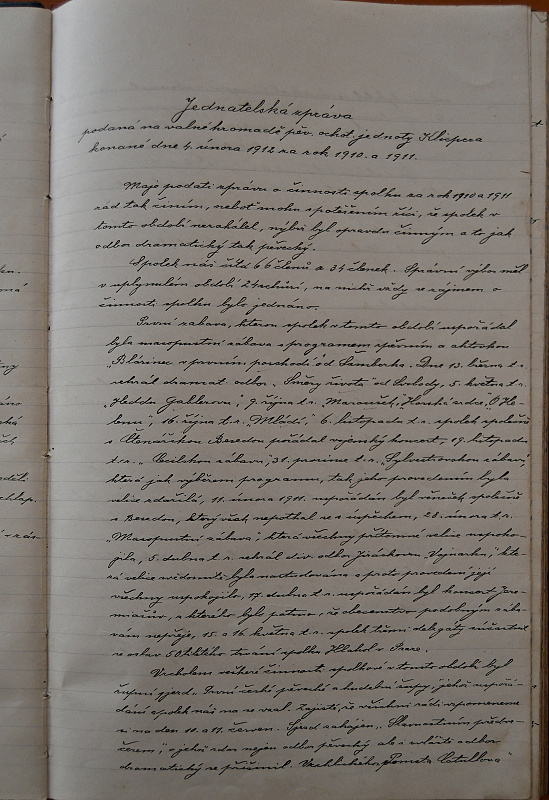 Jednatelská zpráva
podaná na valné hromadě pěv. ochot. jednoty Klicpera
konané dne 4. února 1912 za rok 1910. a 1911.
Maje podati zprávu o činnosti spolku za rok 1910 a 1911
rád tak činím, neboť mohu s potěšením říci, že spolek v
tomto období nezahálel, nýbrž byl opravdu činným a to jak
odbor dramatický tak pěvecký.
Spolek náš čítá 66 členů a 34 členek. Správní výbor měl
v uplynulém období 24 schůzí, na nichž vždy se zájmem o
činnosti spolku bylo jednáno.
První zábava, kterou spolek v tomto období uspořádal
byla masopustní zábava s programem zpěvním a aktovkou
„Blázinec v prvním poschodí" od Šamberka. Dne 13. března t. r.
sehrál dramat. odbor „Směry života" od Svobody, 5. května t. r.
„Hedda Gablerova", 9. října t. r. „Hou
lenu", 16. října t. r. „Mládí", 6. listopadu t. r. spolek společně
s Čtenářskou Besedou pořádal koncert, 19. listopadu
t. r. „Cecilskou zábavu", 31. prosince t. r. „Sylvestrovskou zábavu",
která jak výběrem programu, tak jeho provedením byla
velice zdařilá, 11. února 1911. uspořádán byl věneček společně
s Besedou, který však nepotkal se s úspěchem, 28. února t. r.
„Masopustní zábava", která všechny přítomné velice uspoko-
jila, 5. dubna t. r. sehrál div. odbor Jiráskovu „Vojnarku", kte-
rá velice svědomitě byla nastudována a proto provedení její
všechny uspokojilo, 17. dubna t. r. uspořádán byl koncert Jere-
miášův, z kterého bylo patrno, že obecenstvo podobným zába-
vám nepřeje, 15. a 16. května t. r. spolek třemi delegáty súčastnil
se oslav 50tiletého trvání spolku Hlahol v Praze.
Vrcholem veškeré činnosti spolkové v tomto období byl
župní sjezd. První české pěvecké a hudební župy, jehož uspořá-
dání spolek náš na se vzal. Zajisté, že všichni rádi vzpomeneme
si na den 10. a 11. červen. Sjezd zahájen „Slavnostním předve-
čerem", o jehož zdar nejen odbor pěvecký ale i zvláště odbor
dramatický se přičinil. Vrchlického „Pomsta Catullova"